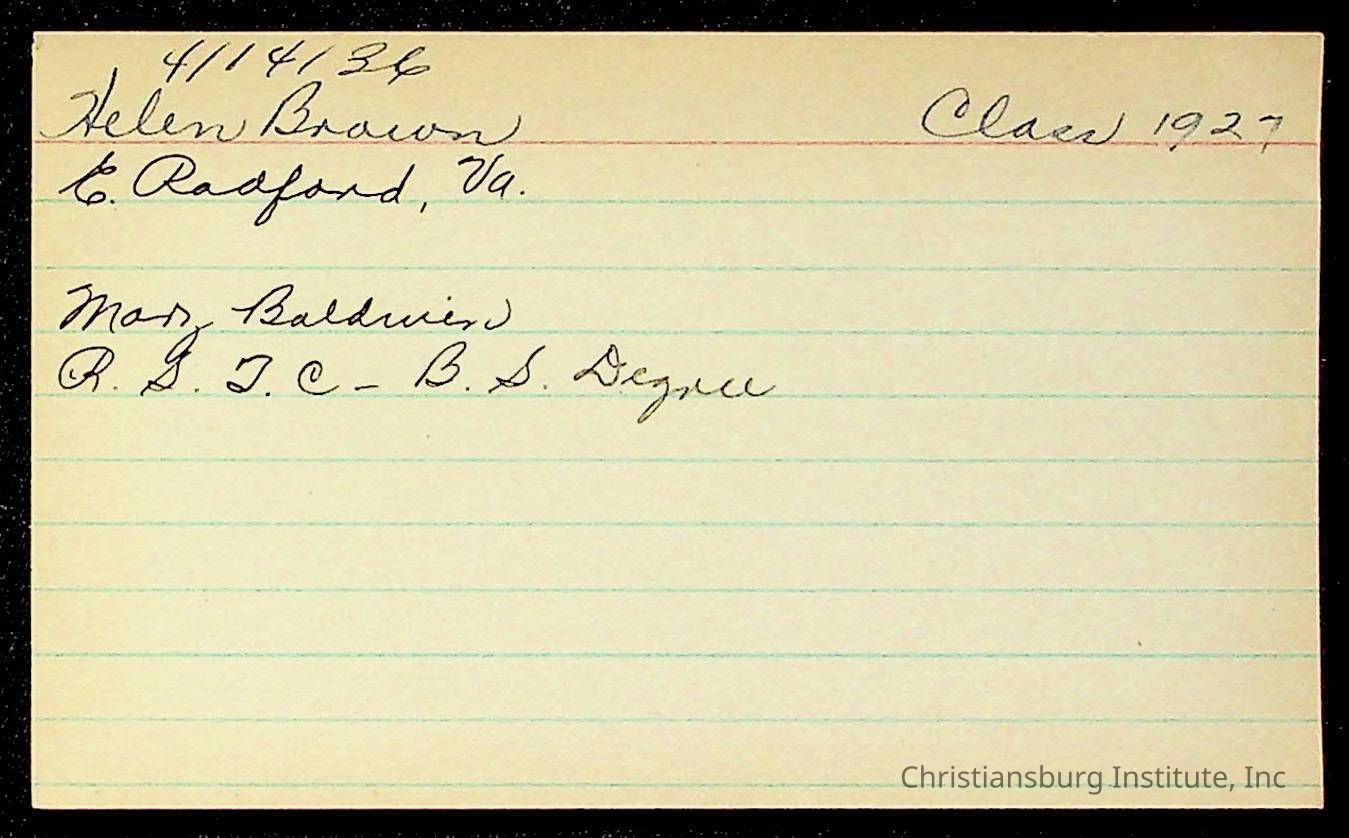 4/14/36
Helen Brown Class 1927
E. Radford, Va.
Mary Baldwin
R. S. T. C - B. S. Degree
Christiansburg Institute, Inc